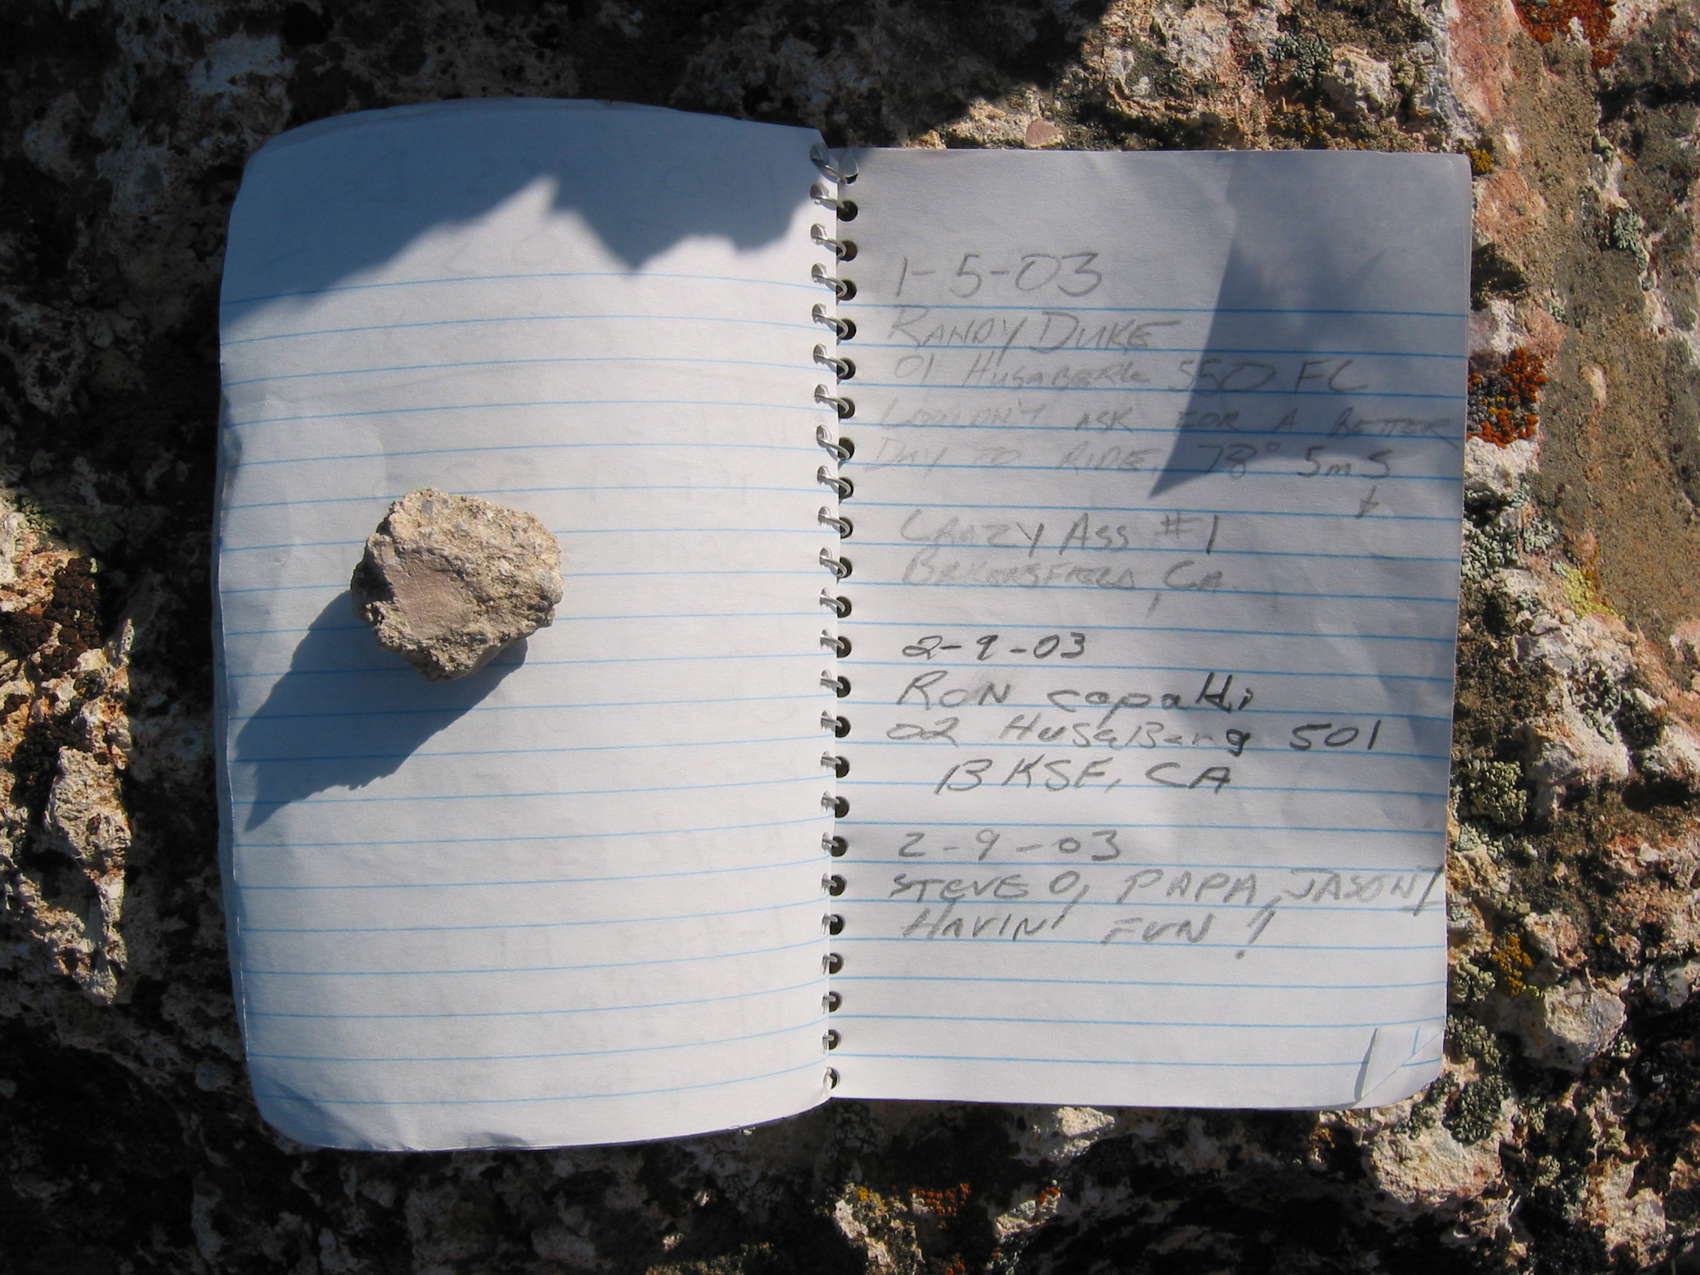 1-5-03
RANDY DUKE
01 HUSABERG 550 FC
COULDN'T ASK FOR A BETTER
DAY TO RIDE, 78° 5m S
CRAZY ASS #1
BAKERSFIELD, CA
2-9-03
RON
02 HusaBerg 501
BKSF, CA
2-9-03
STEVE O, PAPA, JASON
HAVIN' FUN!